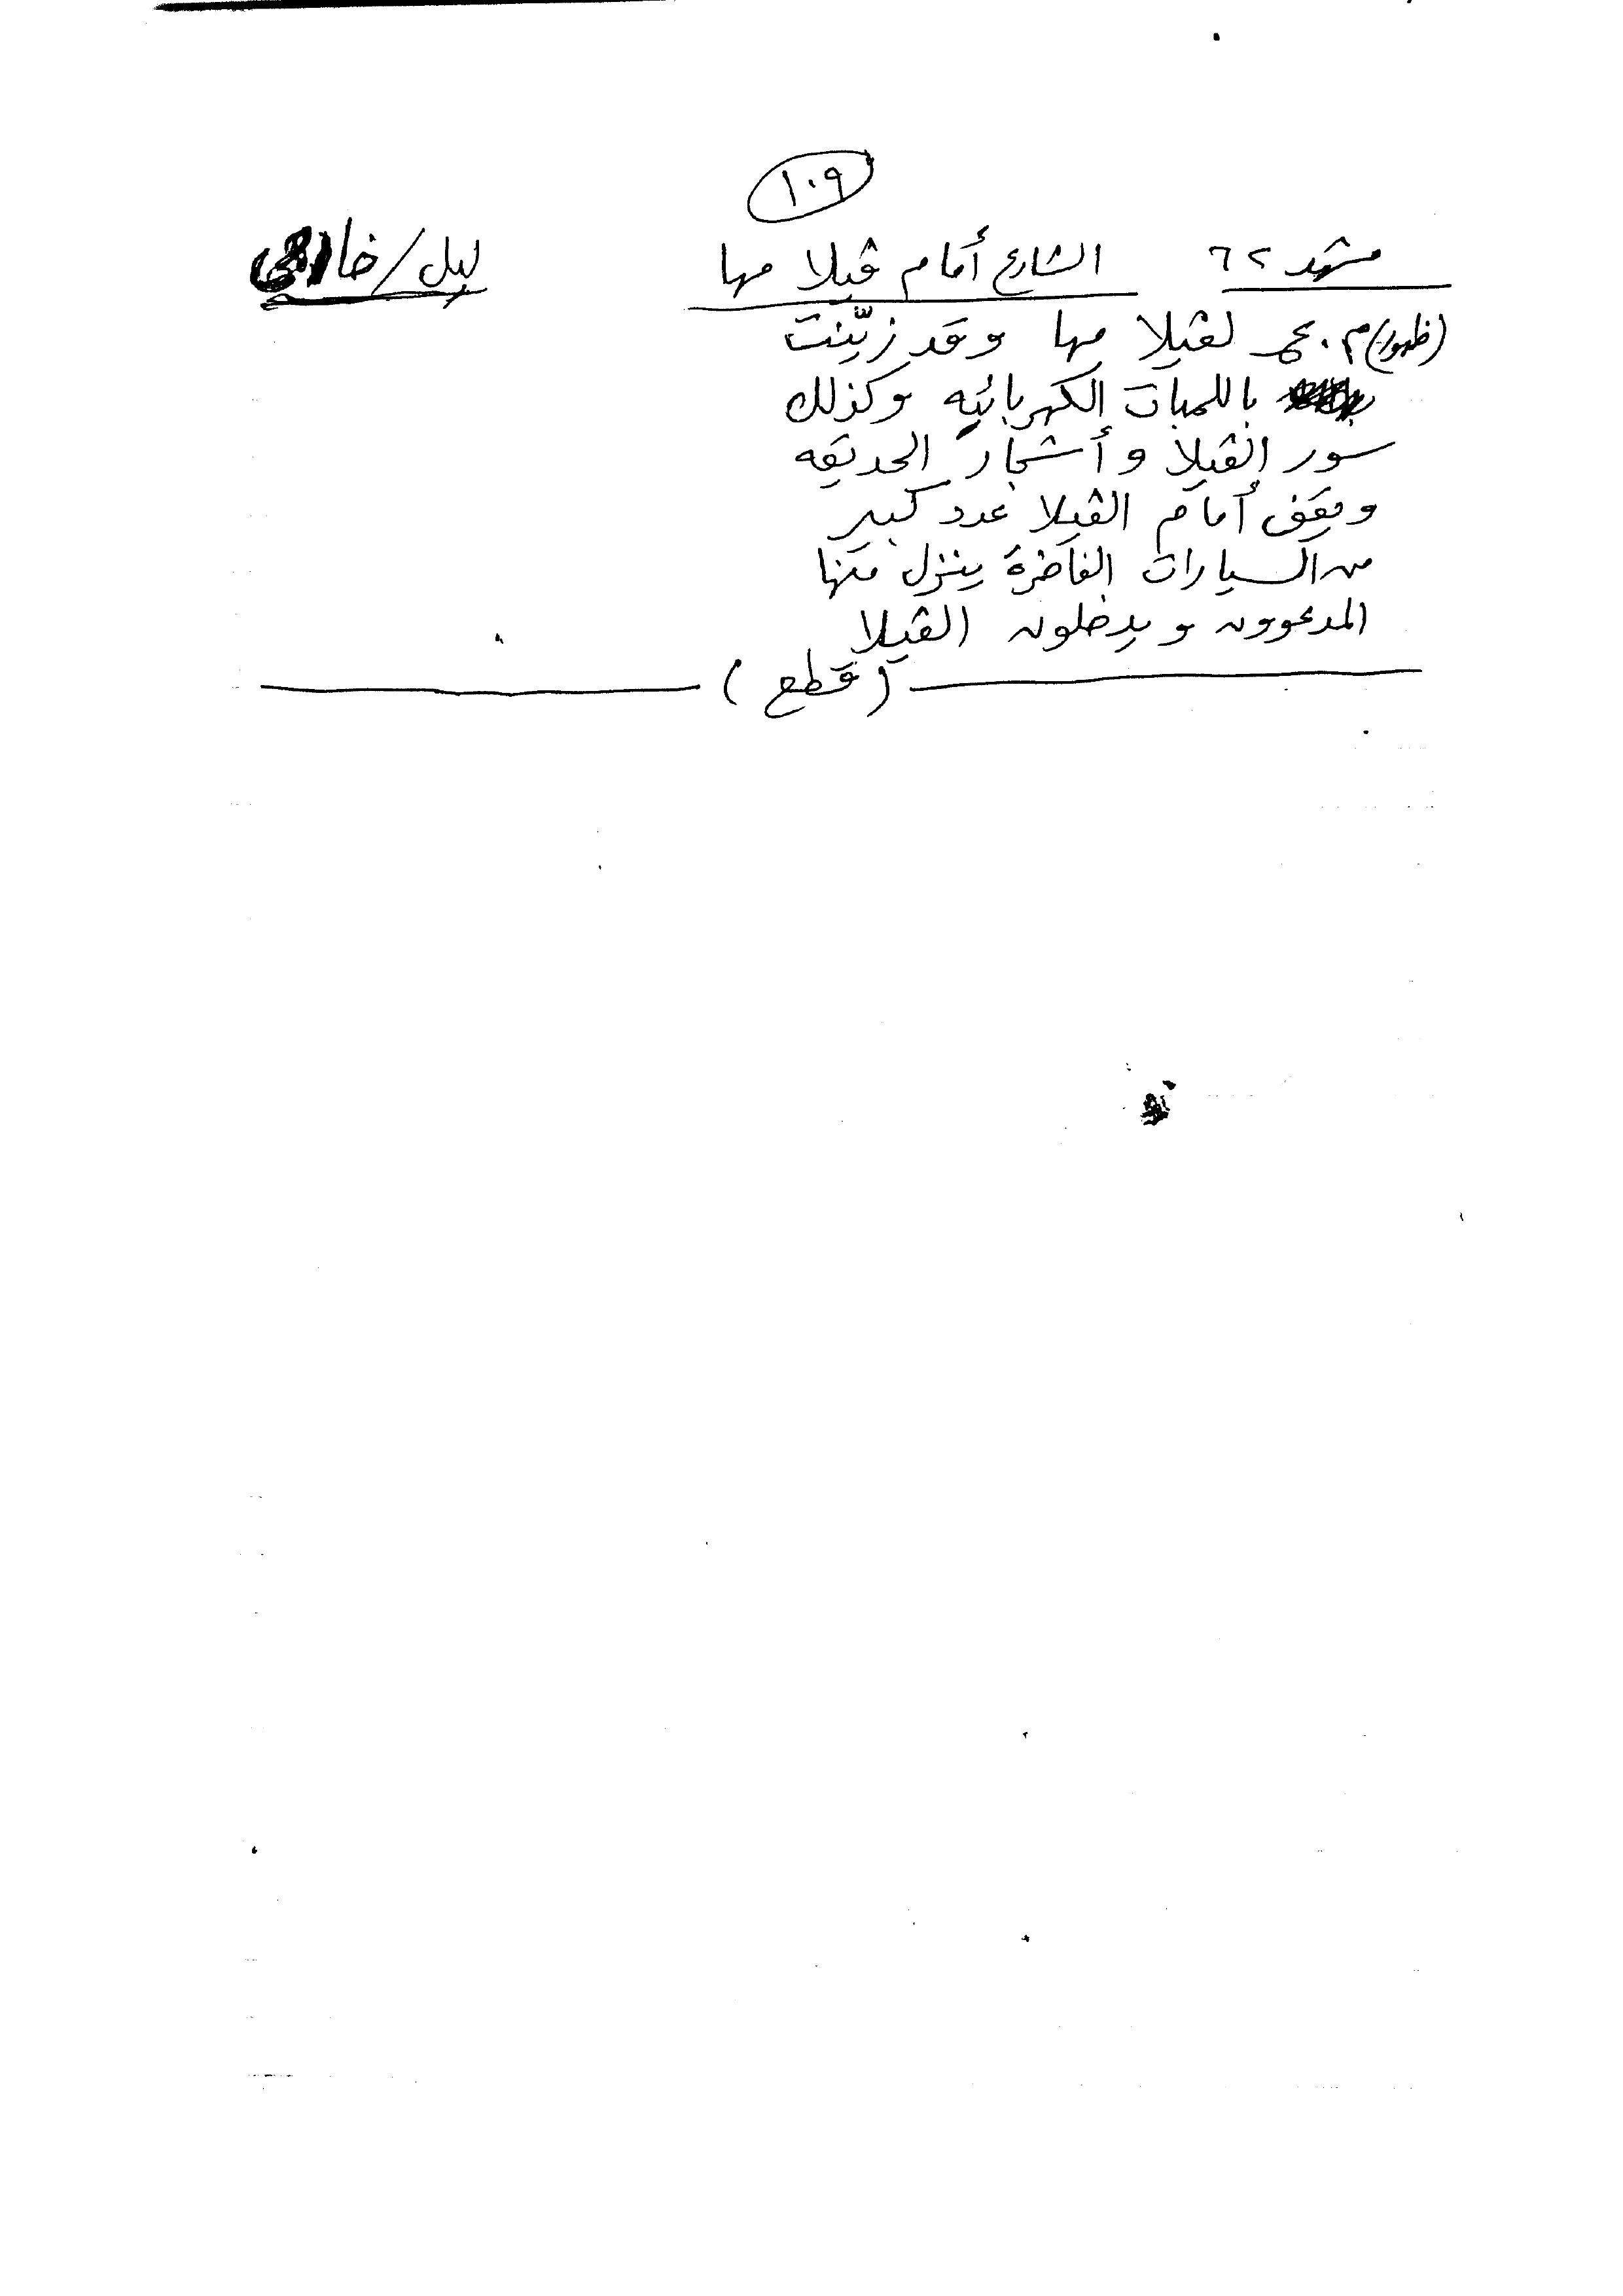 ١٠٩
مشهد ٦٢ الشارع أمام ڤيلا مها ليل/خارجى
(ظهور) م. لڤيلا مها وقد زيّنت
باللمبات الكهربائيه وكذلك
سور الڤيلا وأشجار الحديقه
ويقف أمام الڤيلا عدد كبير
من السيارات الفاخرة ينزل منها
المدعوون ويدخلون الڤيلا
(قطع)